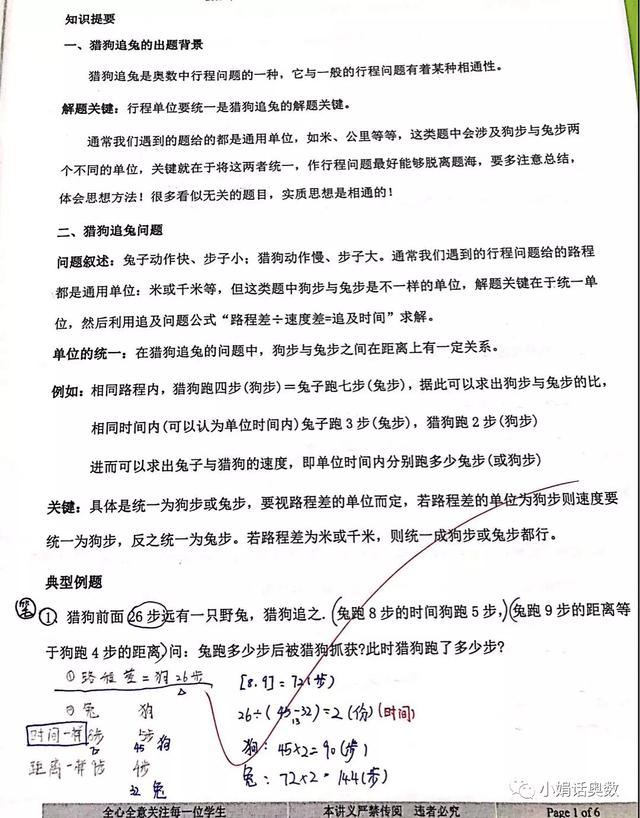 知识提要
一、猎狗追兔的出题背景
猎狗追兔是奥数中行程问题的一种，它与一般的行程问题有着某种相通性。
解题关键：行程单位要统一是猎狗追兔的解题关键。
通常我们遇到的题给的都是通用单位，如米、公里等等，这类题中会涉及狗步与兔步两
个不同的单位，关键就在于将这两者统一，作行程问题最好能够脱离题海，要多注意总结，
体会思想方法！很多看似无关的题目，实质思想是相通的！
二、猎狗追兔问题
问题叙述：兔子动作快、步子小；猎狗动作慢、步子大。通常我们遇到的行程问题给的路程
都是通用单位：米或千米等，但这类题中狗步与兔步是不一样的单位，解题关键在于统一单
位，然后利用追及问题公式“路程差÷速度差=追及时间”求解。
单位的统一：在猎狗追兔的问题中，狗步与兔步之间在距离上有一定关系。
例如：相同路程内，猎狗跑四步(狗步)＝兔子跑七步(兔步)，据此可以求出狗步与兔步的比，
相同时间内(可以认为单位时间内)兔子跑 3 步(兔步)，猎狗跑 2 步(狗步)
进而可以求出兔子与猎狗的速度，即单位时间内分别跑多少兔步(或狗步)
关键：具体是统一为狗步或兔步，要视路程差的单位而定，若路程差的单位为狗步则速度要
统一为狗步，反之统一为兔步。若路程差为米或千米，则统一成狗步或兔步都行。
典型例题
① 猎狗前面 26 步远有一只野兔，猎狗追之.(兔跑 8 步的时间狗跑 5 步，)(兔跑 9 步的距离等
于狗跑 4 步的距离)问：兔跑多少步后被猎狗抓获?此时猎狗跑了多少步?
①路程差＝狗26步 [8.9]＝72(步)
②兔 狗 26÷(45-32)＝2(份)(时间)
13
时间一样 8步 5步
45 狗 狗：45×2＝90(步)
距离一样 4步 兔：72×2＝144(步)
32 兔
小娟话奥数
全心全意关注每一位学生 本讲义严禁传阅 违者必究 Page 1 of 6